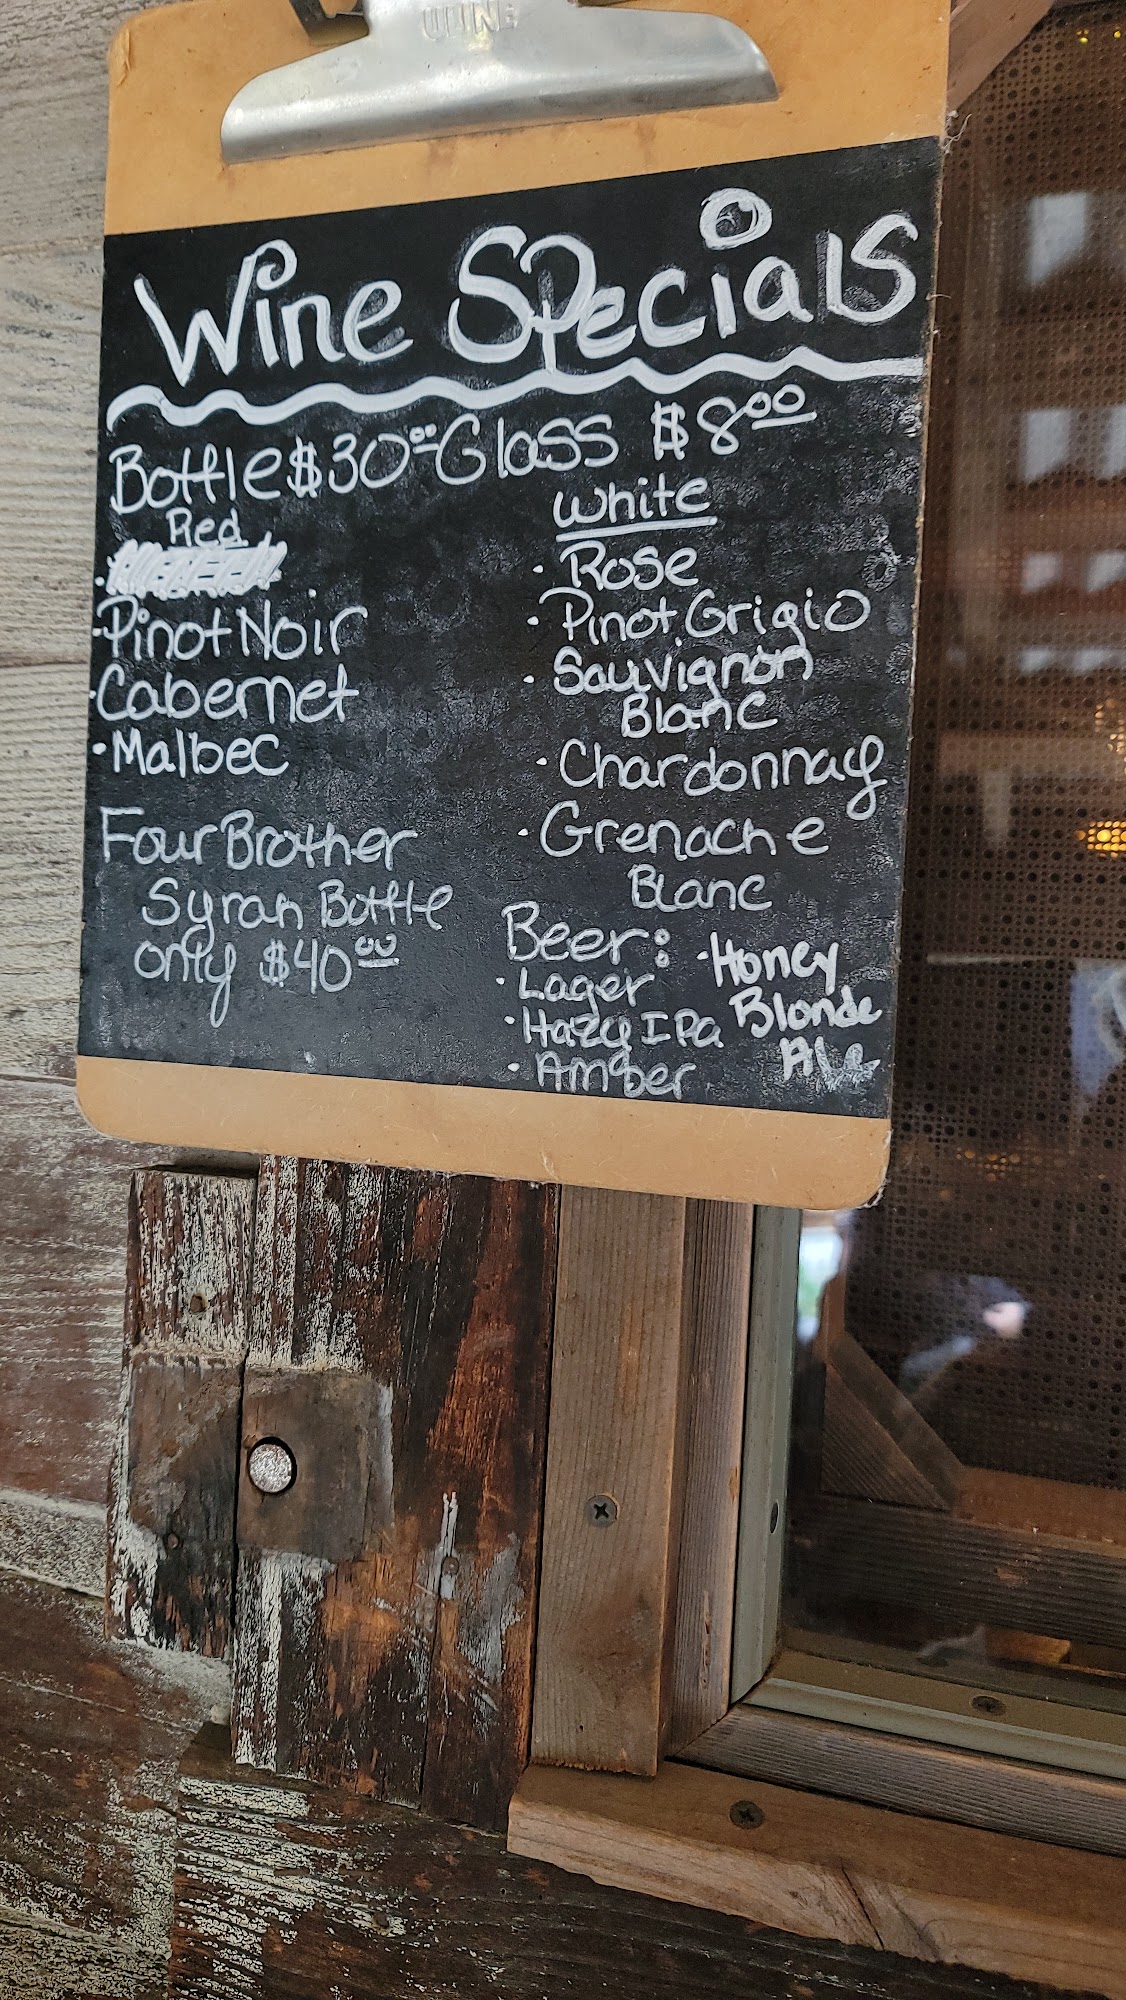 Wine Specials
Bottle $30.00 Glass $8.00
Red
· Pinot Noir
· Cabernet
· Malbec
Four Brother
Syrah Bottle
only $40.00
White
· Rose
· Pinot Grigio
· Sauvignon
Blanc
· Chardonnay
· Grenache
Blanc
Beer:
· Lager
· Hazy IPa
· Amber
· Honey
Blonde
Ale